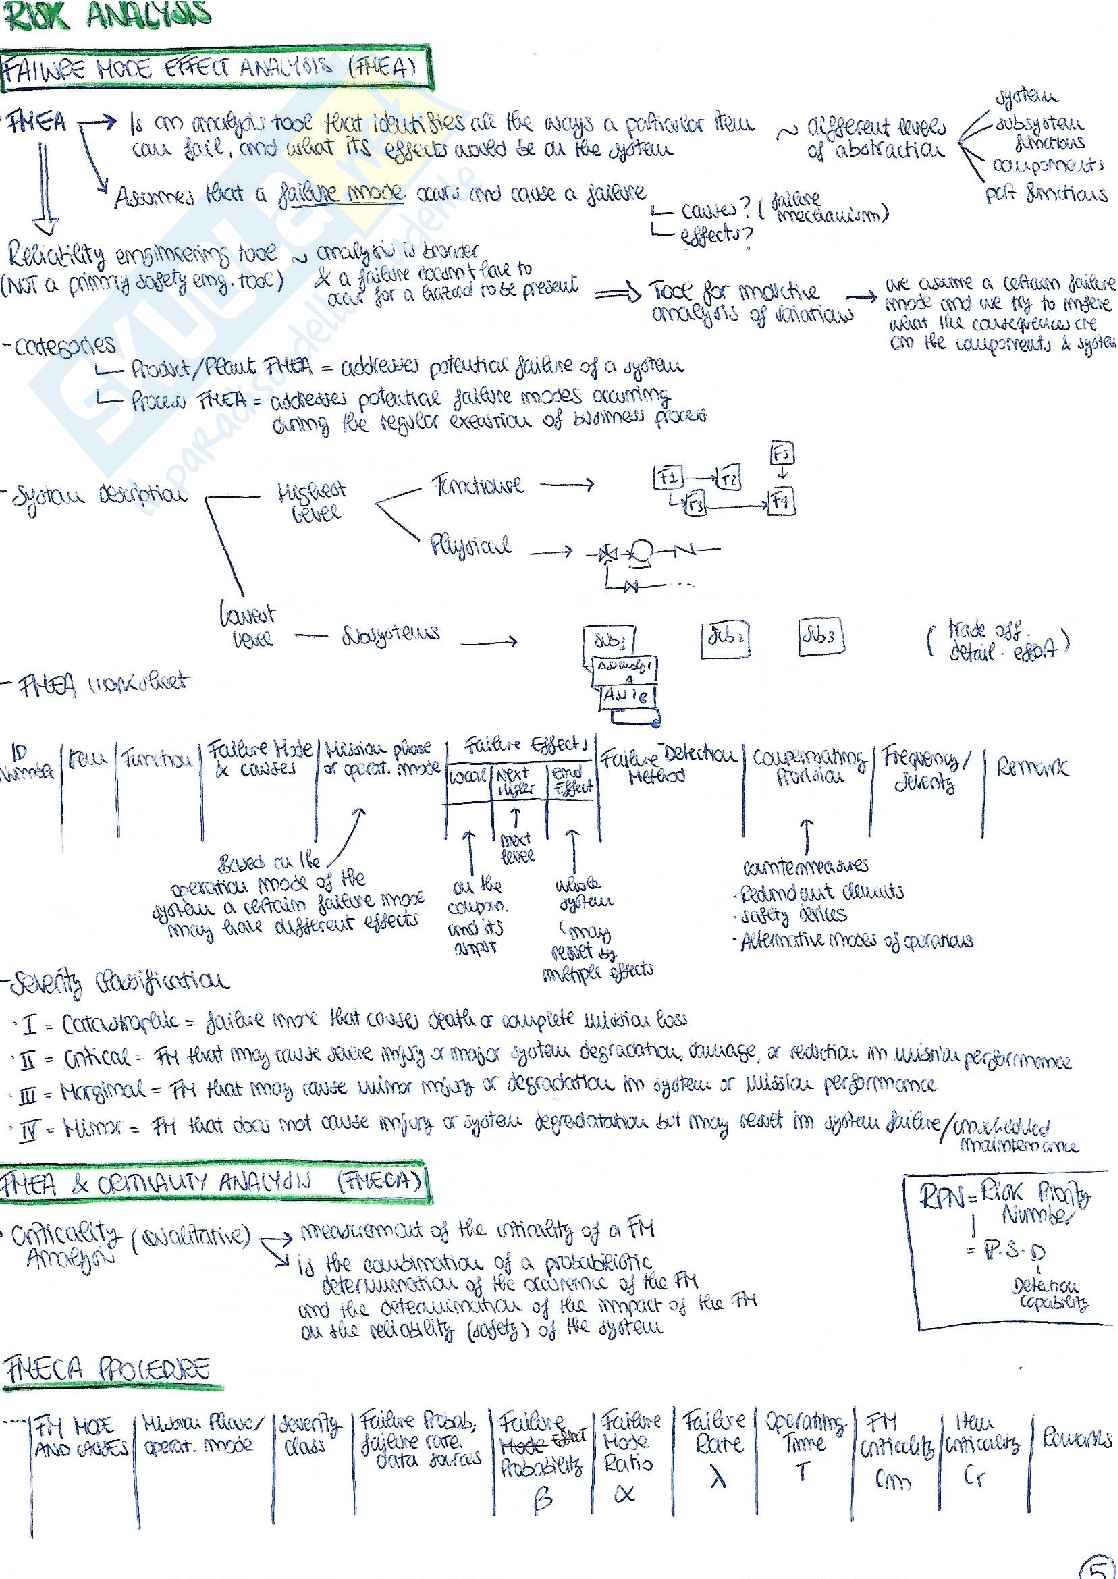 RISK ANALYSIS
FAILURE MODE EFFECT ANALYSIS (FMEA)
FMEA → Is an analysis tool that identifies all the ways a particular item ~ different levels
can fail, and what its effects would be on the system
of abstraction
system
subsystem
functions
components
part functions
Assumes that a failure mode occurs and cause a failure
causes? (failure
mechanism)
effects?
Reliability engineering tool ~ analysis is broader
(NOT a primary safety eng. tool)
& a failure doesn't have to
occur for a hazard to be present
⇒ Tool for inductive
analysis of situations
→ we assume a certain failure
mode and we try to infere
what the consequences are
on the components & system
- categories
Product/Plant FMEA = addresses potential failure of a system
Process FMEA = addresses potential failure modes occurring
during the regular execution of business process
- System description
Highest
level
Functional →
F1 F2 F3 F3 F4
Physical →
Lowest
level
Subsystems →
Sub1 Sub2 Sub3
Assembly
A
(trade off
detail - effort)
- FMEA worksheet
ID
Number
Item
Function
Failure Mode
& causes
Mission phase
or operat. mode
Failure Effects
Local
Next
Higher
End
Effect
Failure Detection
Method
Compensating
Provision
Frequency/
Severity
Remark
next
level
Based on the
operation mode of the
system a certain failure mode
may have different effects
on the
compon.
and its
output
whole
system
(may
result by
multiple effects
countermeasures
· Redundant elements
· Safety devices
· Alternative modes of operations
- Severity classification
· I = Catastrophic = failure mode that causes death or complete mission loss
· II = Critical = FM that may cause severe injury or major system degradation, damage, or reduction in mission performance
· III = Marginal = FM that may cause minor injury or degradation in system or mission performance
· IV = Minor = FM that does not cause injury or system degradation but may result in system failure/unscheduled
maintenance
FMEA & CRITICALITY ANALYSIS (FMECA)
· Criticality (Qualitative)
Analysis
→ measurement of the criticality of a FM
is the combination of a probabilistic
determination of the occurrence of the FM
and the determination of the impact of the FM
on the reliability (safety) of the system
RPN = Risk Priority
Number
= P·S·D
Detection
capability
FMECA PROCEDURE
FM MODE
AND CAUSES
Mission Phase/
operat. mode
Severity
class
Failure Probab,
failure rate,
data sources
Failure
Mode Effect
Probability
β
Failure
Mode
Ratio
α
Failure
Rate
λ
Operating
Time
T
FM
criticality
Cm
Item
criticality
Cr
Remarks
5